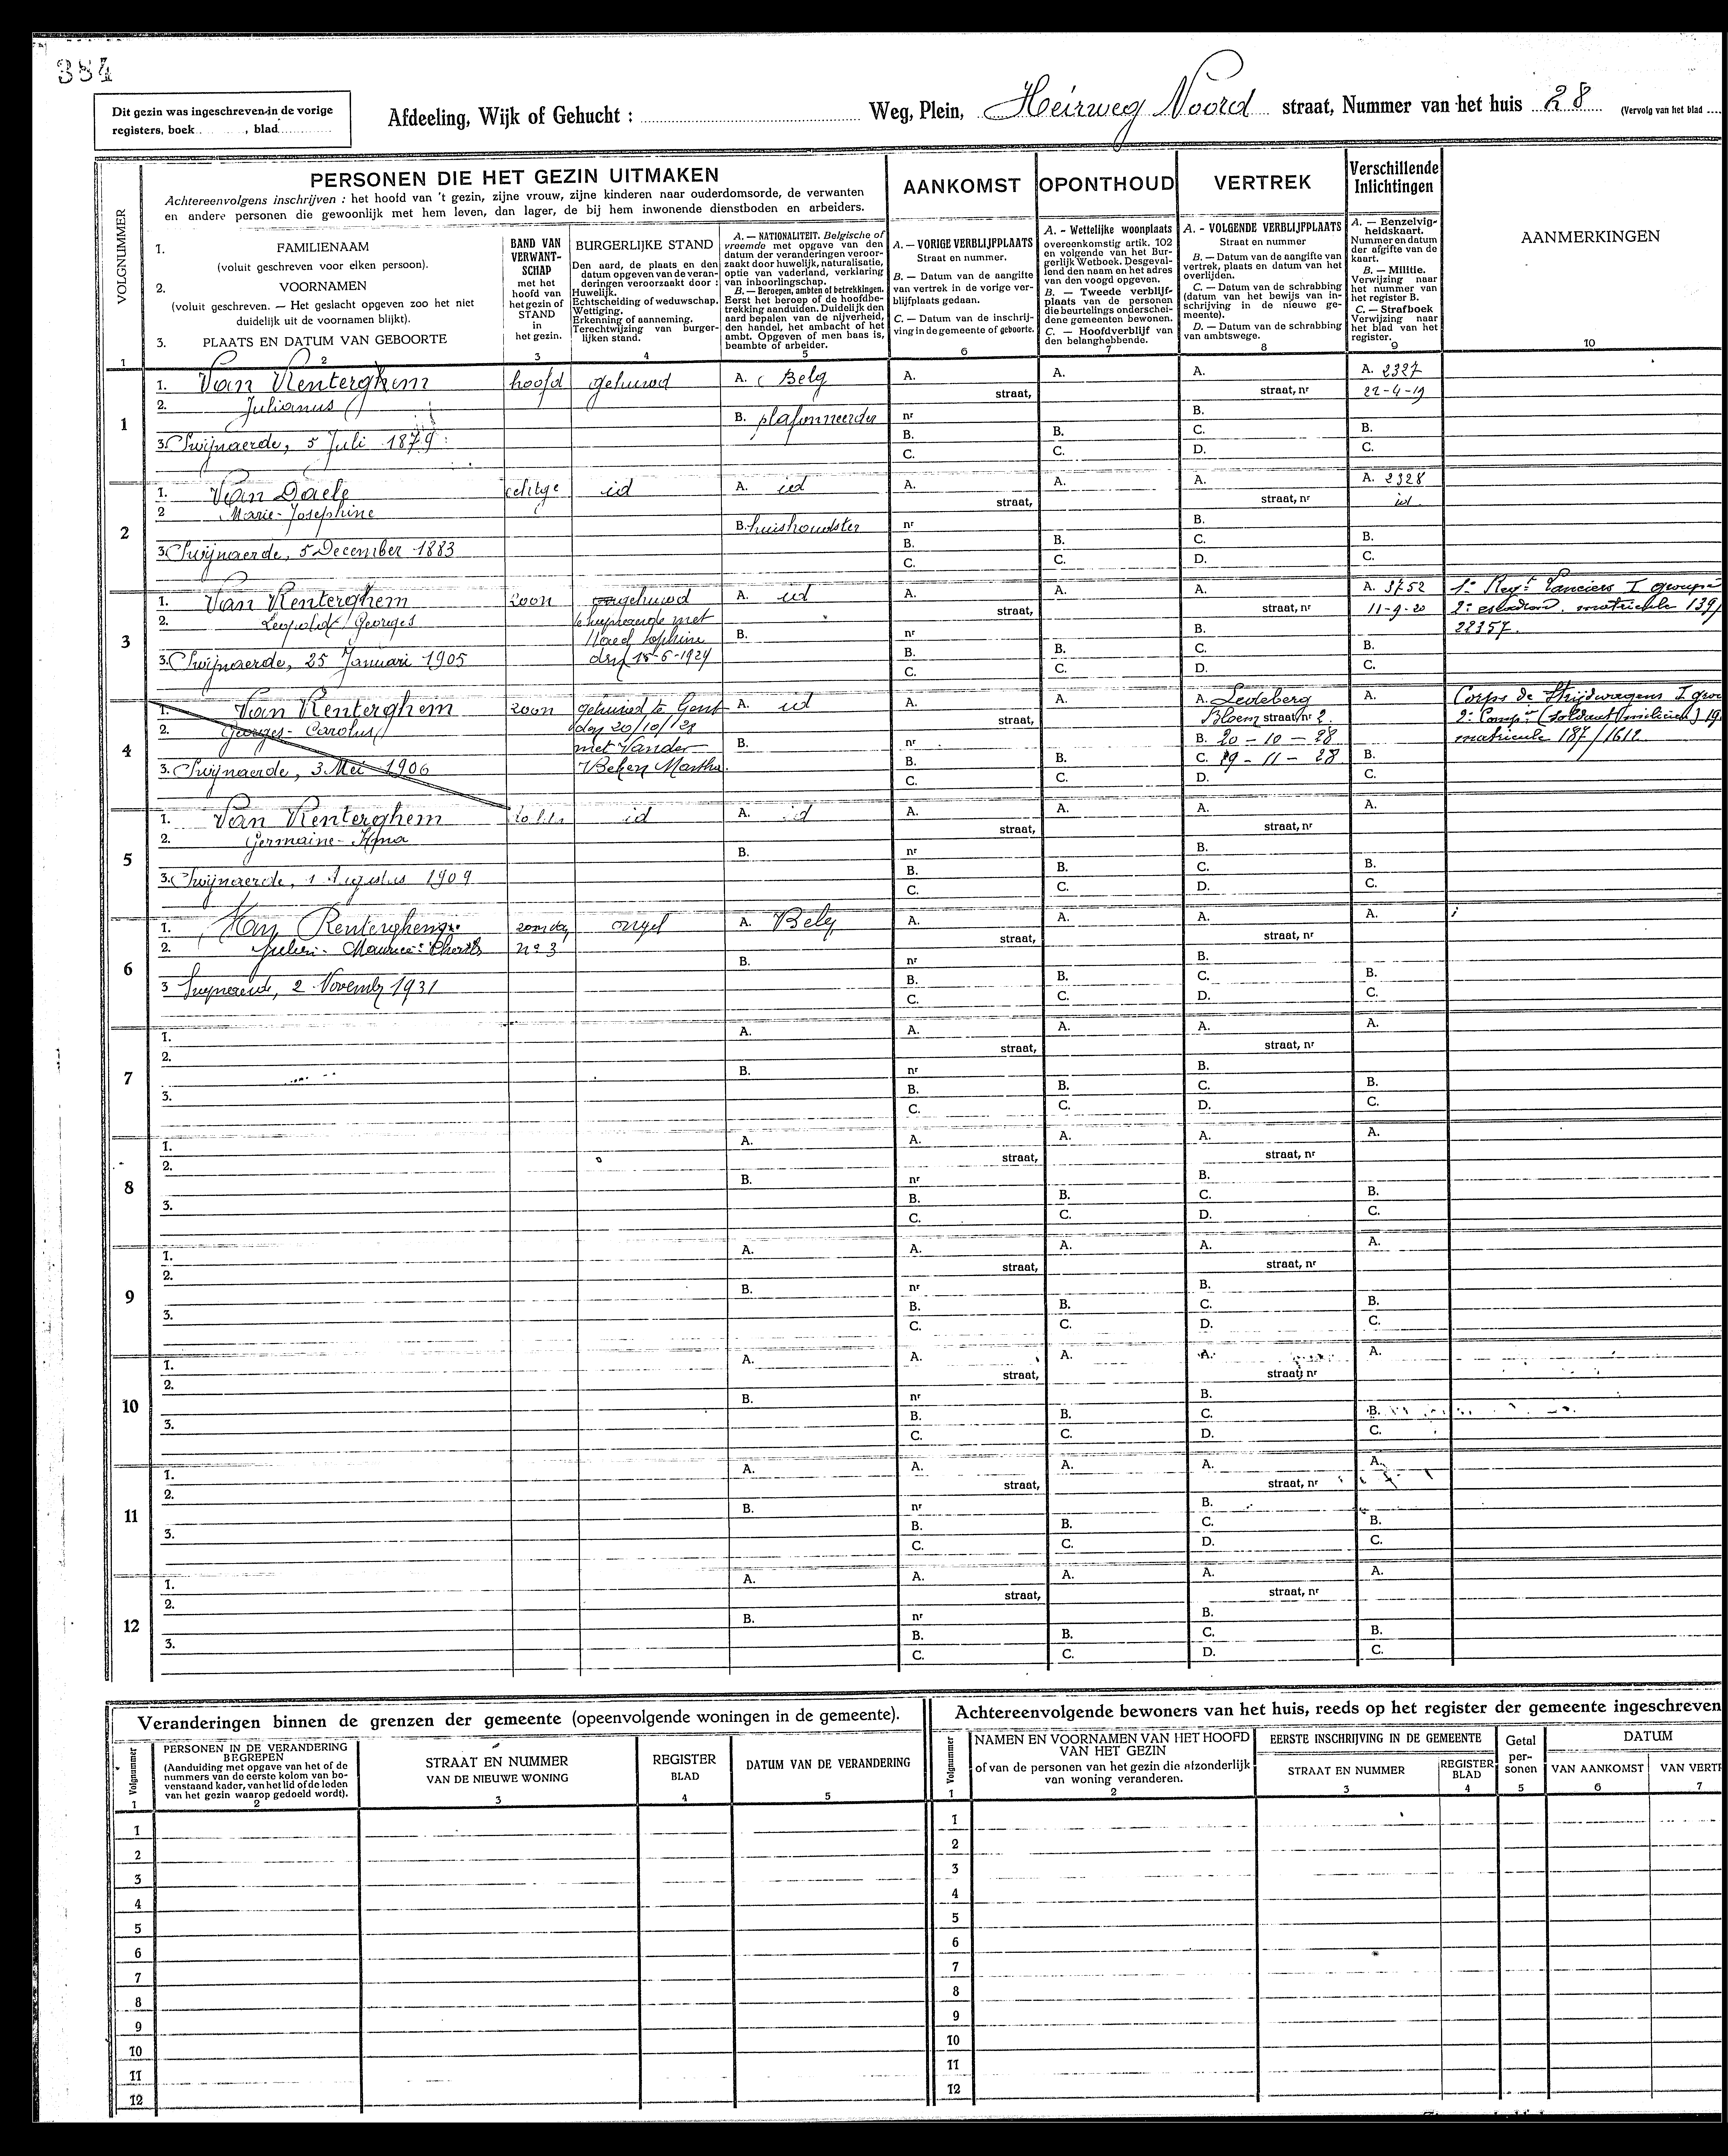 384
Dit gezin was ingeschreven in de vorige
registers, boek , blad
Afdeeling, Wijk of Gehucht :
Weg, Plein, Heirweg Noord straat, Nummer van het huis 28 (Vervolg van het blad
VOLGNUMMER
PERSONEN DIE HET GEZIN UITMAKEN
Achtereenvolgens inschrijven : het hoofd van 't gezin, zijne vrouw, zijne kinderen naar ouderdomsorde, de verwanten
en andere personen die gewoonlijk met hem leven, dan lager, de bij hem inwonende dienstboden en arbeiders.
1. FAMILIENAAM
(voluit geschreven voor elken persoon).
2. VOORNAMEN
(voluit geschreven. — Het geslacht opgeven zoo het niet
duidelijk uit de voornamen blijkt).
3. PLAATS EN DATUM VAN GEBOORTE
BAND VAN
VERWANT-
SCHAP
met het
hoofd van
het gezin of
STAND
in
het gezin.
BURGERLIJKE STAND
Den aard, de plaats en den
datum opgeven van de veran-
deringen veroorzaakt door :
Huwelijk.
Echtscheiding of weduwschap.
Wettiging.
Erkenning of aanneming.
Terechtwijzing van burger-
lijken stand.
A. — NATIONALITEIT. Belgische of
vreemde met opgave van den
datum der veranderingen veroor-
zaakt door huwelijk, naturalisatie,
optie van vaderland, verklaring
van inboorlingschap.
B. — Beroepen, ambten of betrekkingen.
Eerst het beroep of de hoofdbe-
trekking aanduiden. Duidelijk den
aard bepalen van de nijverheid,
den handel, het ambacht of het
ambt. Opgeven of men baas is,
beambte of arbeider.
AANKOMST
A. — VORIGE VERBLIJFPLAATS
Straat en nummer.
B. — Datum van de aangifte
van vertrek in de vorige ver-
blijfplaats gedaan.
C. — Datum van de inschrij-
ving in de gemeente of geboorte.
OPONTHOUD
A. - Wettelijke woonplaats
overeenkomstig artik. 102
en volgende van het Bur-
gerlijk Wetboek. Desgeval-
lend den naam en het adres
van den voogd opgeven.
B. — Tweede verblijf-
plaats van de personen
die beurtelings onderschei-
dene gemeenten bewonen.
C. — Hoofdverblijf van
den belanghebbende.
VERTREK
A. - VOLGENDE VERBLIJFPLAATS
Straat en nummer
B. — Datum van de aangifte van
vertrek, plaats en datum van het
overlijden.
C. — Datum van de schrabbing
(datum van het bewijs van in-
schrijving in de nieuwe ge-
meente).
D. — Datum van de schrabbing
van ambtswege.
Verschillende
Inlichtingen
A. — Eenzelvig-
heidskaart.
Nummer en datum
der afgifte van de
kaart.
B. — Militie.
Verwijzing naar
het nummer van
het register B.
C. — Strafboek
Verwijzing naar
het blad van het
register.
AANMERKINGEN
1 2 3 4 5 6 7 8 9 10
1
1. Van Renterghem hoofd gehuwd A. Belg A. straat, A. A. straat, nr A. 2327
22-4-19
2. Julianus B. plafonneerder nr B.
3. Swijnaerde, 5 Juli 1879 B. C. B. C. C. D. B. C.
2
1. Van Daele echtge id A. id A. straat, A. A. straat, nr A. 2328
id
2 Marie-Josephine B. huishoudster nr B.
3. Swijnaerde, 5 December 1883 B. C. B. C. C. D. B. C.
3
1. Van Renterghem zoon ongehuwd A. id A. straat, A. A. straat, nr A. 3752
11-9-20
1e Regt Lanciers I groupe
2e eskadron. matricule 139/
22357.
2. Leopold Georges met
Sophine B. nr B.
3. Swijnaerde, 25 Januari 1905 den 15-6-1924 B. C. B. C. C. D. B. C.
4
1. Van Renterghem zoon gehuwd te Gent A. id A. straat, A. A. Ledeberg A.
Bloem straat, nr 2.
Corps de Strijdwagens I gro
2e Compie (soldaat milicien) 19
matricule 187/1612
2. Georges-Carolus den 20/10/28
met Vander B. nr B. 20-10-28
3. Swijnaerde, 3 Mei 1906 Beken Martha. B. C. B. C. C. 19-11-28 D. B. C.
5
1. Van Renterghem id A. id A. straat, A. A. straat, nr A.
2. Germaine-Irma B. nr B.
3. Swijnaerde, 1 Augustus 1909 B. C. B. C. C. D. B. C.
6
1. Van Renterghem ongeh A. Belg A. straat, A. A. straat, nr A.
2. Julien-Maurice- no 3 B. nr B.
3 Swynaerde, 2 November 1931 B. C. B. C. C. D. B. C.
7
1. A. A. straat, A. A. straat, nr A.
2. B. nr B.
3. B. C. B. C. C. D. B. C.
8
1. A. A. straat, A. A. straat, nr A.
2. B. nr B.
3. B. C. B. C. C. D. B. C.
9
1. A. A. straat, A. A. straat, nr A.
2. B. nr B.
3. B. C. B. C. C. D. B. C.
10
1. A. A. straat, A. A. straat, nr A.
2. B. nr B.
3. B. C. B. C. C. D. B. C.
11
1. A. A. straat, A. A. straat, nr A.
2. B. nr B.
3. B. C. B. C. C. D. B. C.
12
1. A. A. straat, A. A. straat, nr A.
2. B. nr B.
3. B. C. B. C. C. D. B. C.
Veranderingen binnen de grenzen der gemeente (opeenvolgende woningen in de gemeente).
Volgnummer
PERSONEN IN DE VERANDERING
BEGREPEN
(Aanduiding met opgave van het of de
nummers van de eerste kolom van bo-
venstaand kader, van het lid of de leden
van het gezin waarop gedoeld wordt).
STRAAT EN NUMMER
VAN DE NIEUWE WONING
REGISTER
BLAD
DATUM VAN DE VERANDERING
1 2 3 4 5
1
2
3
4
5
6
7
8
9
10
11
12
Achtereenvolgende bewoners van het huis, reeds op het register der gemeente ingeschreven
Volgnummer
NAMEN EN VOORNAMEN VAN HET HOOFD
VAN HET GEZIN
of van de personen van het gezin die afzonderlijk
van woning veranderen.
EERSTE INSCHRIJVING IN DE GEMEENTE
STRAAT EN NUMMER
REGISTER
BLAD
Getal
per-
sonen
DATUM
VAN AANKOMST
VAN VERTR
1 2 3 4 5 6 7
1
2
3
4
5
6
7
8
9
10
11
12